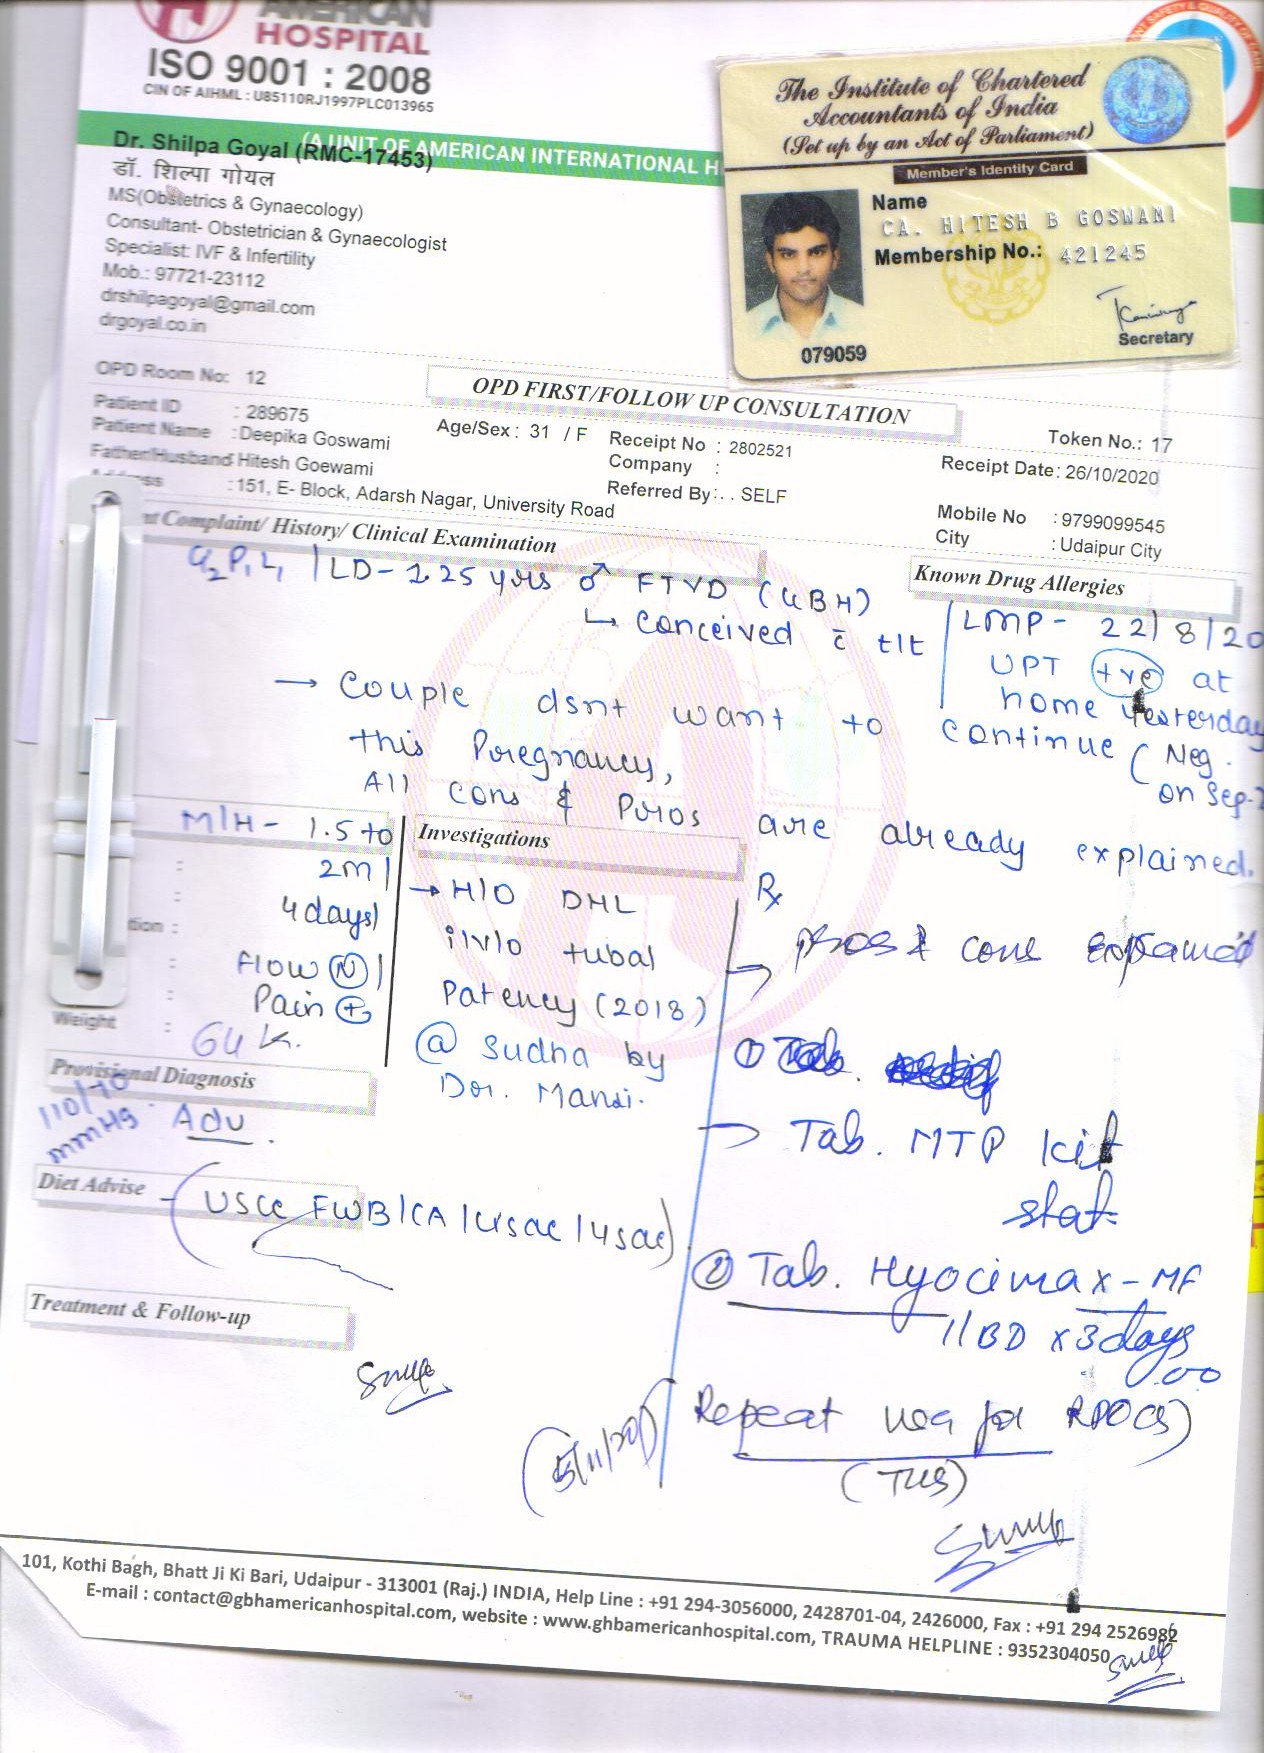 AMERICAN
HOSPITAL
ISO 9001 : 2008
CIN OF AIHML : U85110RJ1997PLC013965
(A UNIT OF AMERICAN INTERNATIONAL H
Dr. Shilpa Goyal (RMC-17453)
डॉ. शिल्पा गोयल
MS(Obstetrics & Gynaecology)
Consultant- Obstetrician & Gynaecologist
Specialist: IVF & Infertility
Mob.: 97721-23112
drshilpagoyal@gmail.com
drgoyal.co.in
The Institute of Chartered
Accountants of India
(Set up by an Act of Parliament)
Member's Identity Card
Name
CA. HITESH B GOSWAMI
Membership No.: 421245
Secretary
079059
OPD Room No: 12
OPD FIRST/FOLLOW UP CONSULTATION
Token No.: 17
Patient ID : 289675
Patient Name : Deepika Goswami
Age/Sex : 31 / F
Receipt No : 2802521
Receipt Date: 26/10/2020
Father/Husband Hitesh Goewami
Company :
: 151, E- Block, Adarsh Nagar, University Road
Referred By: . . SELF
Mobile No : 9799099545
City : Udaipur City
nt Complaint/ History/ Clinical Examination
Known Drug Allergies
G2P1L1 | LD- 1.25 yrs ♂ FTVD (GBH)
↳ conceived c̄ t/t
LMP- 22/8/20
UPT +ve at
home yesterday
(Neg.
on Sep-
→ Couple dsnt want to continue
this Pregnancy,
All cons & Pros are already explained.
M/H- 1.5 to
2m/
4 days/
Flow (N) |
Pain +
tion :
Weight :
64 K.
Investigations
→ H/O DHL
i/v/o tubal
Patency (2018)
@ Sudha by
Dr. Mansi.
Provisional Diagnosis
110/70
mmHg
Adv.
Diet Advise
USG FWB/CA/
Treatment & Follow-up
Rx
→ Pros & cons Explained
① Tab.
→ Tab. MTP kit
stat
② Tab. Hyocimax-MF
1/BD x 3 days
(5/11/20) Repeat USG for RPOCS)
(TVS)
101, Kothi Bagh, Bhatt Ji Ki Bari, Udaipur - 313001 (Raj.) INDIA, Help Line : +91 294-3056000, 2428701-04, 2426000, Fax : +91 294 2526982
E-mail : contact@gbhamericanhospital.com, website : www.gbhamericanhospital.com, TRAUMA HELPLINE : 9352304050